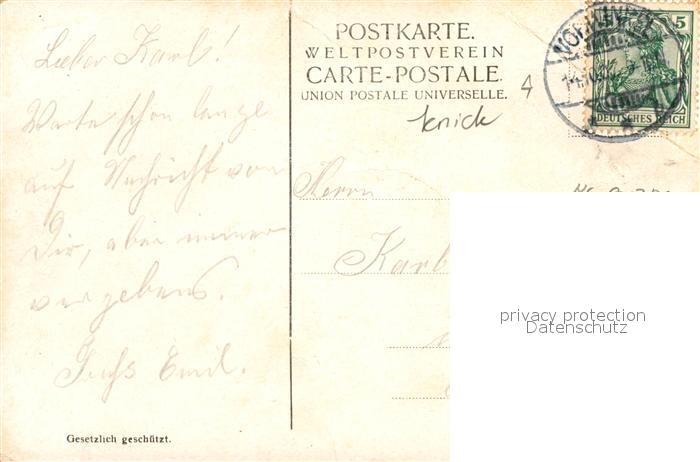 POSTKARTE.
WELTPOSTVEREIN
CARTE-POSTALE.
UNION POSTALE UNIVERSELLE.
4
knick
5
DEUTSCHES REICH
Lieber Karl!
Warte schon lange
auf Nachricht von
Dir, aber immer
vergebens.
Fuchs Emil.
Herrn
Karl
privacy protection
Datenschutz
Gesetzlich geschützt.